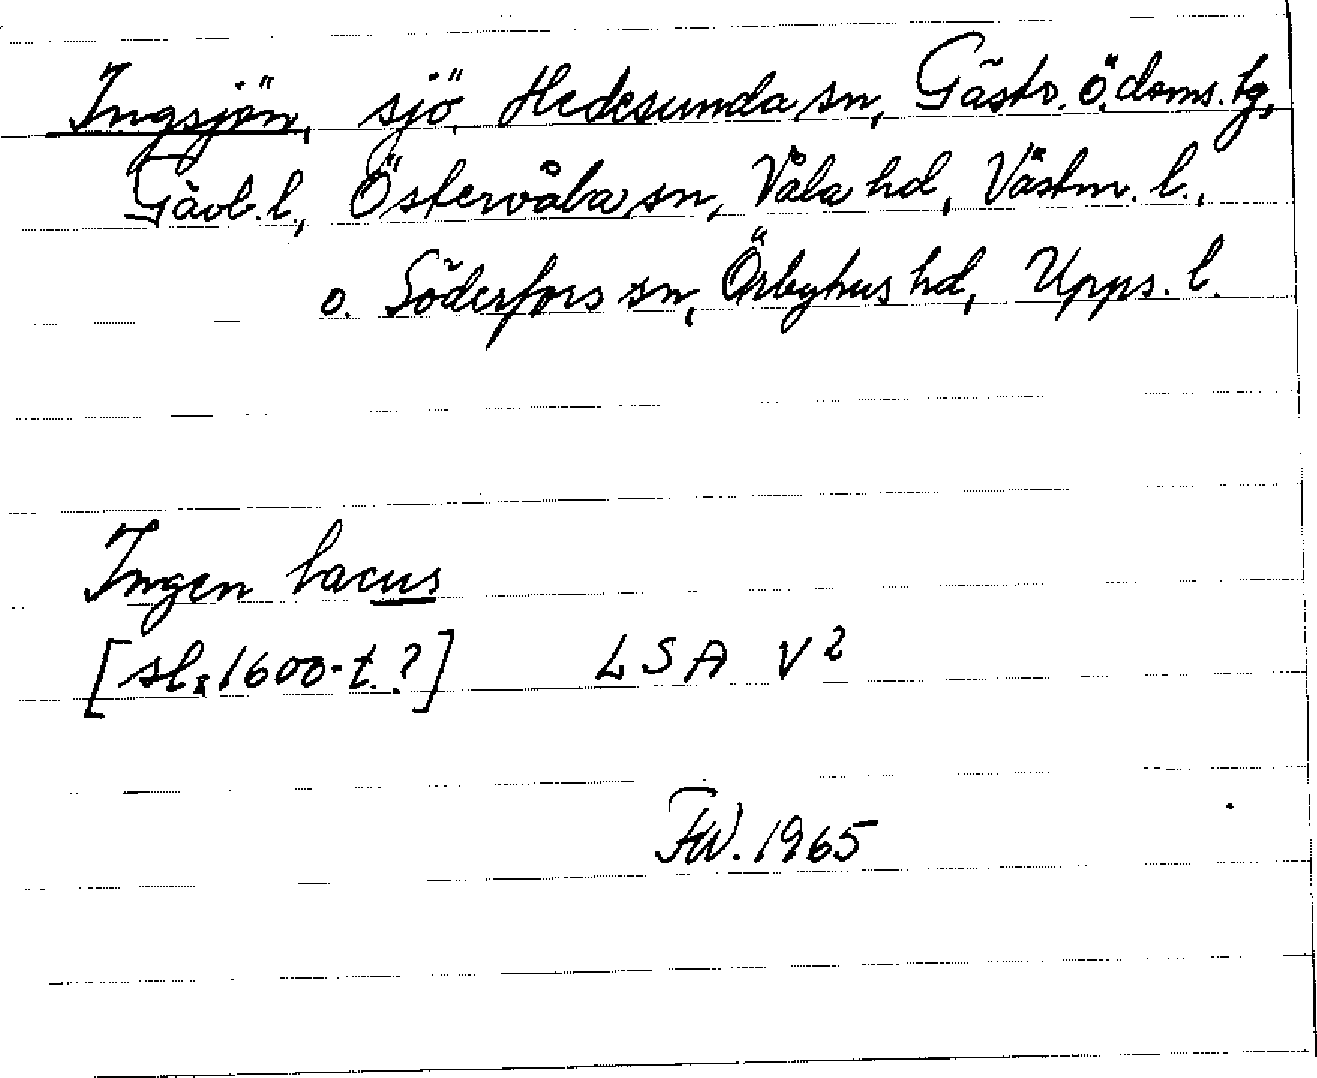 Ingsjön, sjö, Hedesunda sn, Gästr. ö. doms. tg,
Gävl. l., Östervåla sn, Våla hd, Västm. l.,
o. Söderfors sn, Örbyhus hd, Upps. l.
Ingen lacus
[sl. 1600-t.?] LSA V²
FW. 1965